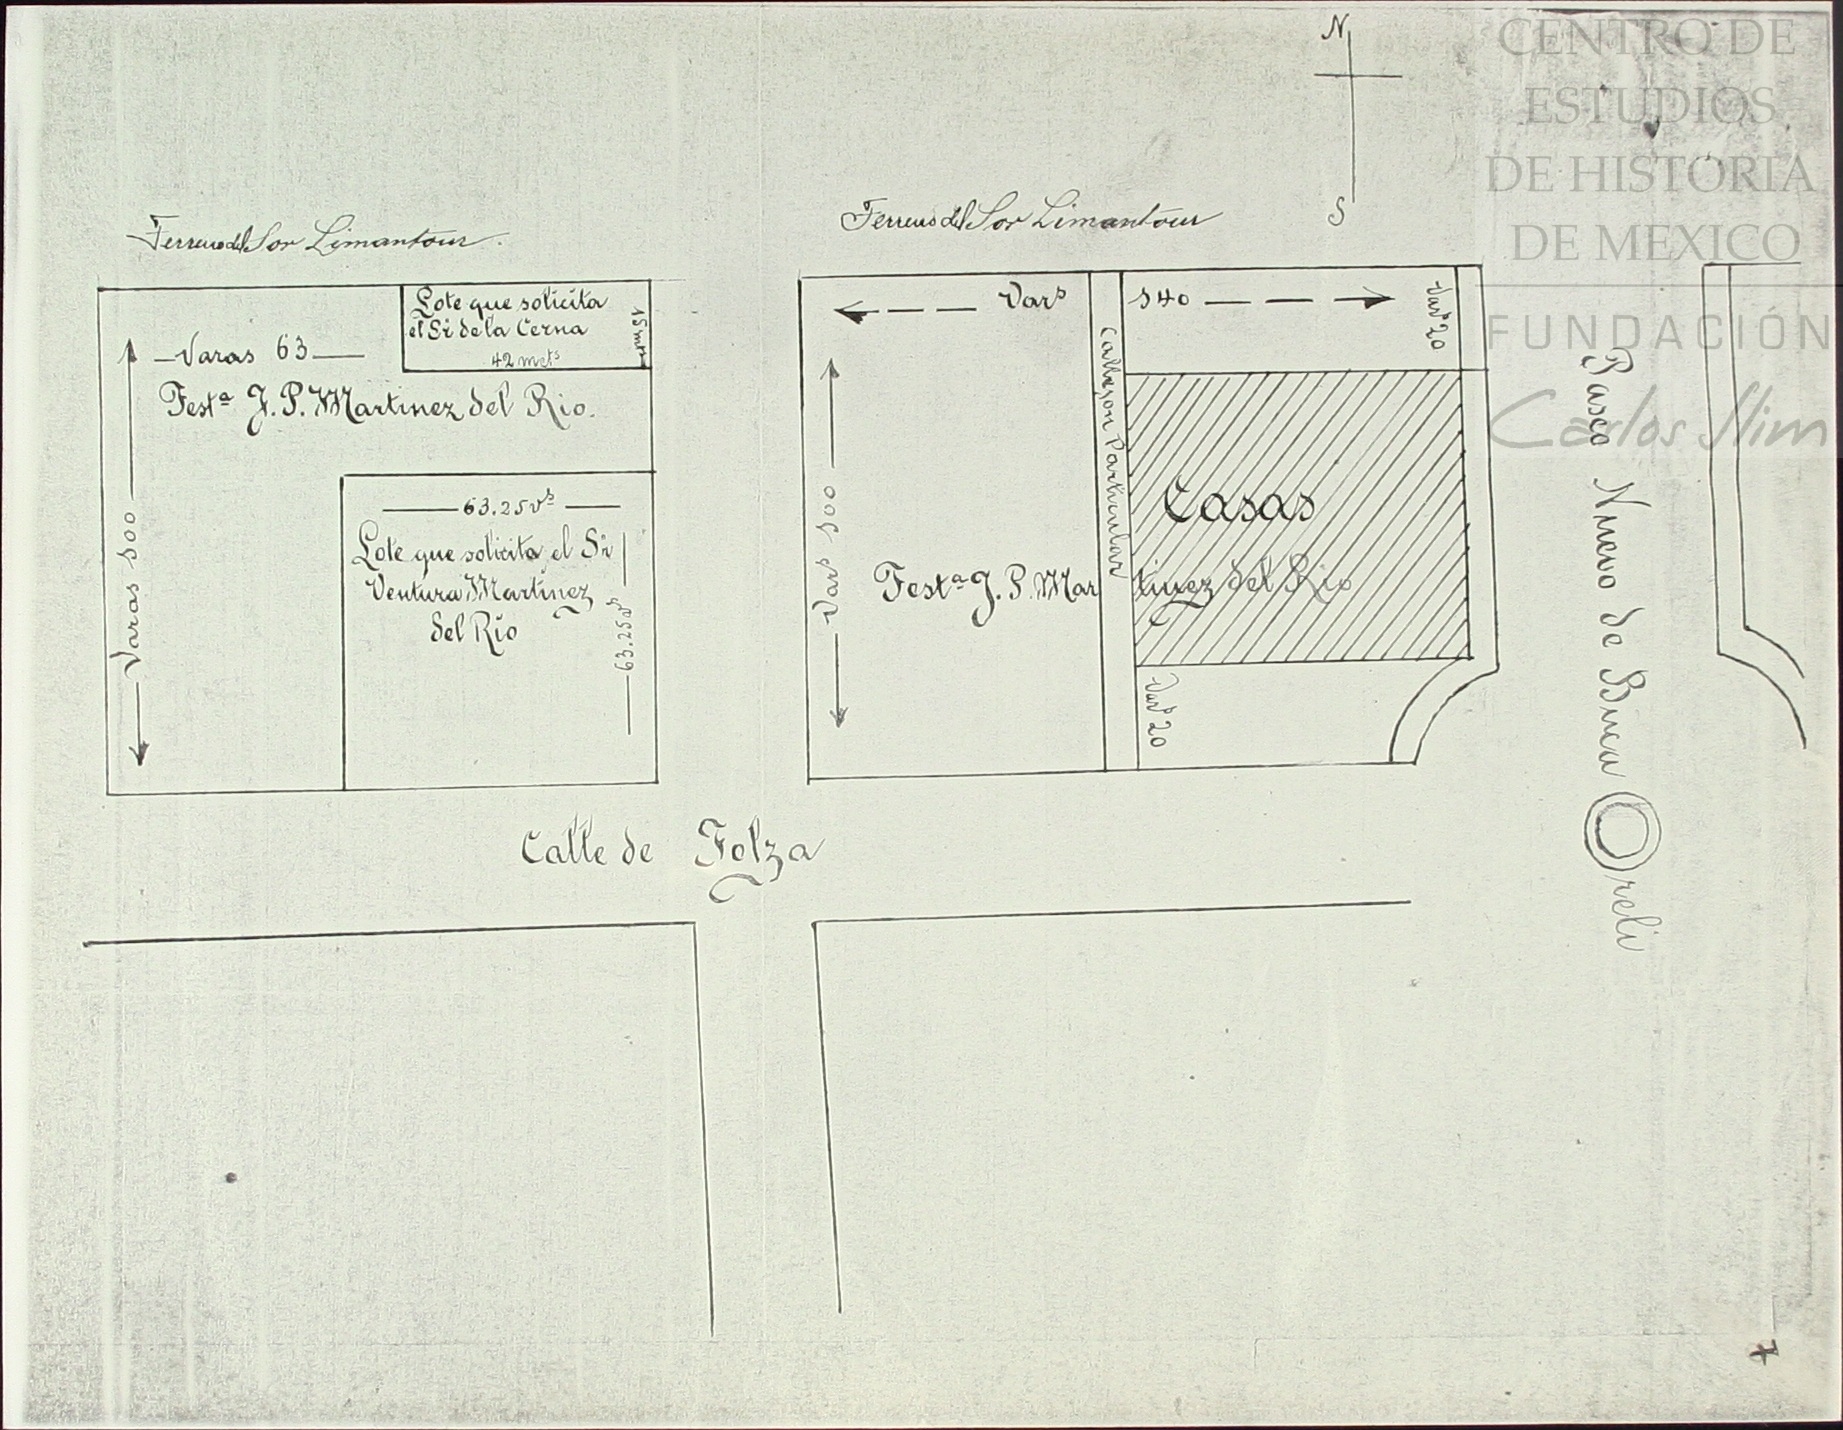 N
S
CENTRO DE
ESTUDIOS
DE HISTORIA
DE MEXICO
FUNDACIÓN
Carlos Slim
Terreno del Sor Limantour.
Terreno del Sor Limantour
Lote que solicita
el Sr de la Cerna
42 mets
15 mts
Varas 63
Testa J. P. Martinez del Rio.
Varas 100
63.25 vs
Lote que solicita el Sr
Ventura Martinez
del Rio
63.25 vs
Vars 140
Vars 20
Callejon Particular
Vars 100
Casas
Testa J. P. Martinez del Rio
Vars 20
Paseo Nuevo de Bucareli
Calle de Tolza